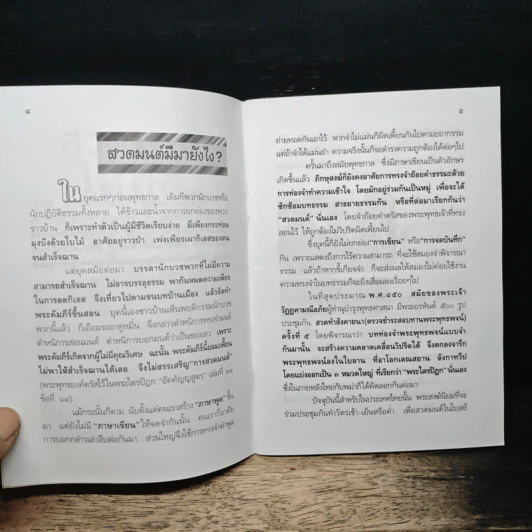 ๔
สวดมนต์มีมายังไง?
ในยุคแรกๆก่อนพุทธกาล เดิมทีพวกนักบวชหรือ
นักปฏิบัติธรรมทั้งหลาย ได้ข้าวและน้ำจากการยกย่องของพวก
ชาวบ้าน ก็เพราะทำตัวเป็นผู้มีชีวิตเรียบง่าย มีเพียงกระท่อม
มุงบังด้วยใบไม้ อาศัยอยู่ราวป่า เพ่งเพียรเผากิเลสของตน
จนสำเร็จฌาน
แต่ยุคสมัยต่อมา บรรดานักบวชพวกที่ไม่มีความ
สามารถสำเร็จฌาน ไม่อาจบรรลุธรรม พากันหมดความเพียร
ในการอดกิเลส จึงเที่ยวไปตามชนบทบ้านเมือง แล้วจัดทำ
พระคัมภีร์ขึ้นสอน ยุคนี้เองชาวบ้านเห็นพฤติกรรมนักบวช
พวกนี้แล้ว ก็เอือมระอาดูหมิ่น จึงกล่าวตำหนิการทรงจำมนต์
ตำหนิการสอนมนต์ ตำหนิการบอกมนต์ว่าเป็นของเลว เพราะ
คัมภีร์นี้เกิดจากผู้ไม่มีคุณวิเศษ ฉะนั้น พระคัมภีร์นี้ย่อมเพี้ยน
ไม่พาให้สำเร็จฌานได้เลย จึงไม่สรรเสริญ"การสวดมนต์"
(พระพุทธองค์ตรัสไว้ในพระไตรปิฎก "อัคคัญญสูตร" เล่มที่ ๑๑
ข้อที่ ๖๔)
แม้กระนั้นก็ตาม นับตั้งแต่คนเราสร้าง "ภาษาพูด" ขึ้น
มา แต่ยังไม่มี "ภาษาเขียน" ให้จดจำกันนั้น คนเราก็อาศัย
การบอกกล่าวเล่าสืบต่อกันมา ส่วนใหญ่จึงใช้การทรงจำคำพูด
๕
ถ่ายทอดกันเอาไว้ หากจำไม่แม่นก็ผิดเพี้ยนกันไปตามยถากรรม
แต่ถ้าจำได้แม่นยำ ความจริงนั้นก็จะดำรงความถูกต้องได้ต่อๆไป
ครั้นมาถึงสมัยพุทธกาล ซึ่งมีภาษาเขียนเป็นตัวอักษร
เกิดขึ้นแล้ว ภิกษุสงฆ์ก็ยังคงอาศัยการทรงจำถ้อยคำธรรมะด้วย
การท่องจำทำความเข้าใจ โดยมักอยู่ร่วมกันเป็นหมู่ เพื่อจะได้
ซักซ้อมบทธรรม สาธยายธรรมกัน หรือที่ต่อมาเรียกกันว่า
"สวดมนต์" นั่นเอง โดยจำถ้อยคำตรัสของพระพุทธเจ้าที่ทรง
สอนไว้ ให้ถูกต้องไม่วิปริตผิดเพี้ยนไป
ซึ่งยุคนี้ก็ยังไม่นิยม"การเขียน" หรือ"การจดบันทึก"
กัน เพราะแสดงถึงการไร้ความสามารถ ที่จะใช้สมองจำพิจารณา
ธรรม แล้วถ้าหากขี้เกียจจำ ก็จะส่งผลให้สมองไม่ค่อยใช้งาน
ความทรงจำในบทธรรมก็จะยิ่งเสื่อมลงเรื่อยๆไป
ในที่สุดประมาณ พ.ศ.๔๕๐ สมัยของพระเจ้า
วัฏฏคามณีอภัยผู้ทำนุบำรุงพุทธศาสนา มีพระอรหันต์ ๕๐๐ รูป
ประชุมกัน สวดทำสังคายนา (ตรวจชำระสอบทานพระพุทธพจน์)
ครั้งที่ ๕ โดยพิจารณาว่า บทท่องจำพระพุทธพจน์แบบจำ
กันมานั้น จะสร้างความคลาดเคลื่อนวิปริตได้ จึงตกลงจารึก
พระพุทธพจน์ลงในใบลาน ที่อาโลกเลณสถาน ลังกาทวีป
โดยแบ่งออกเป็น ๓ หมวดใหญ่ ที่เรียกว่า "พระไตรปิฎก"นั่นเอง
ซึ่งในภายหลังไทยกับพม่าก็ได้คัดลอกกันต่อมา
ปัจจุบันนี้สำหรับในประเทศไทยนั้น พระสงฆ์นิยมที่จะ
ร่วมประชุมกันทำวัตรเช้า-เย็นหรือค่ำ เพื่อสวดมนต์ในโบสถ์